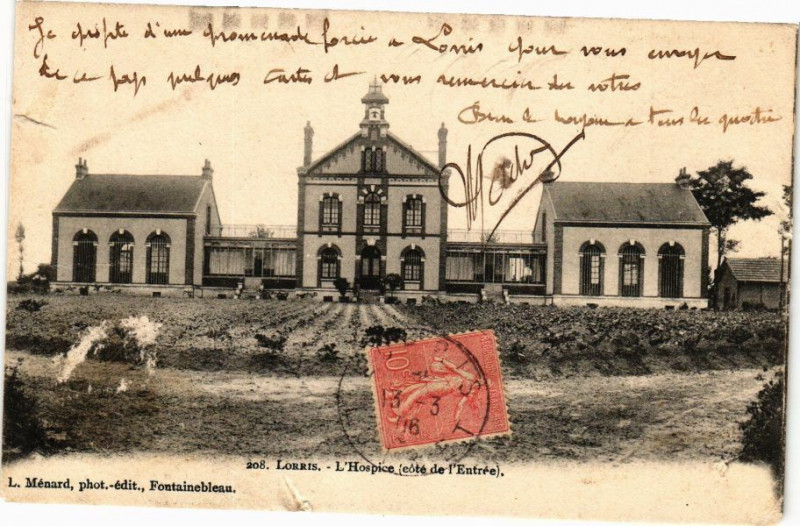 Je profite d'une promenade forcée a Lorris pour vous envoyer
de ce pays quelques cartes et vous remercier des votres
Bien le bonjour a tous les quatre
10
13 - 3
208. LORRIS. - L'Hospice (côté de l'Entrée).
L. Ménard, phot.-édit., Fontainebleau.